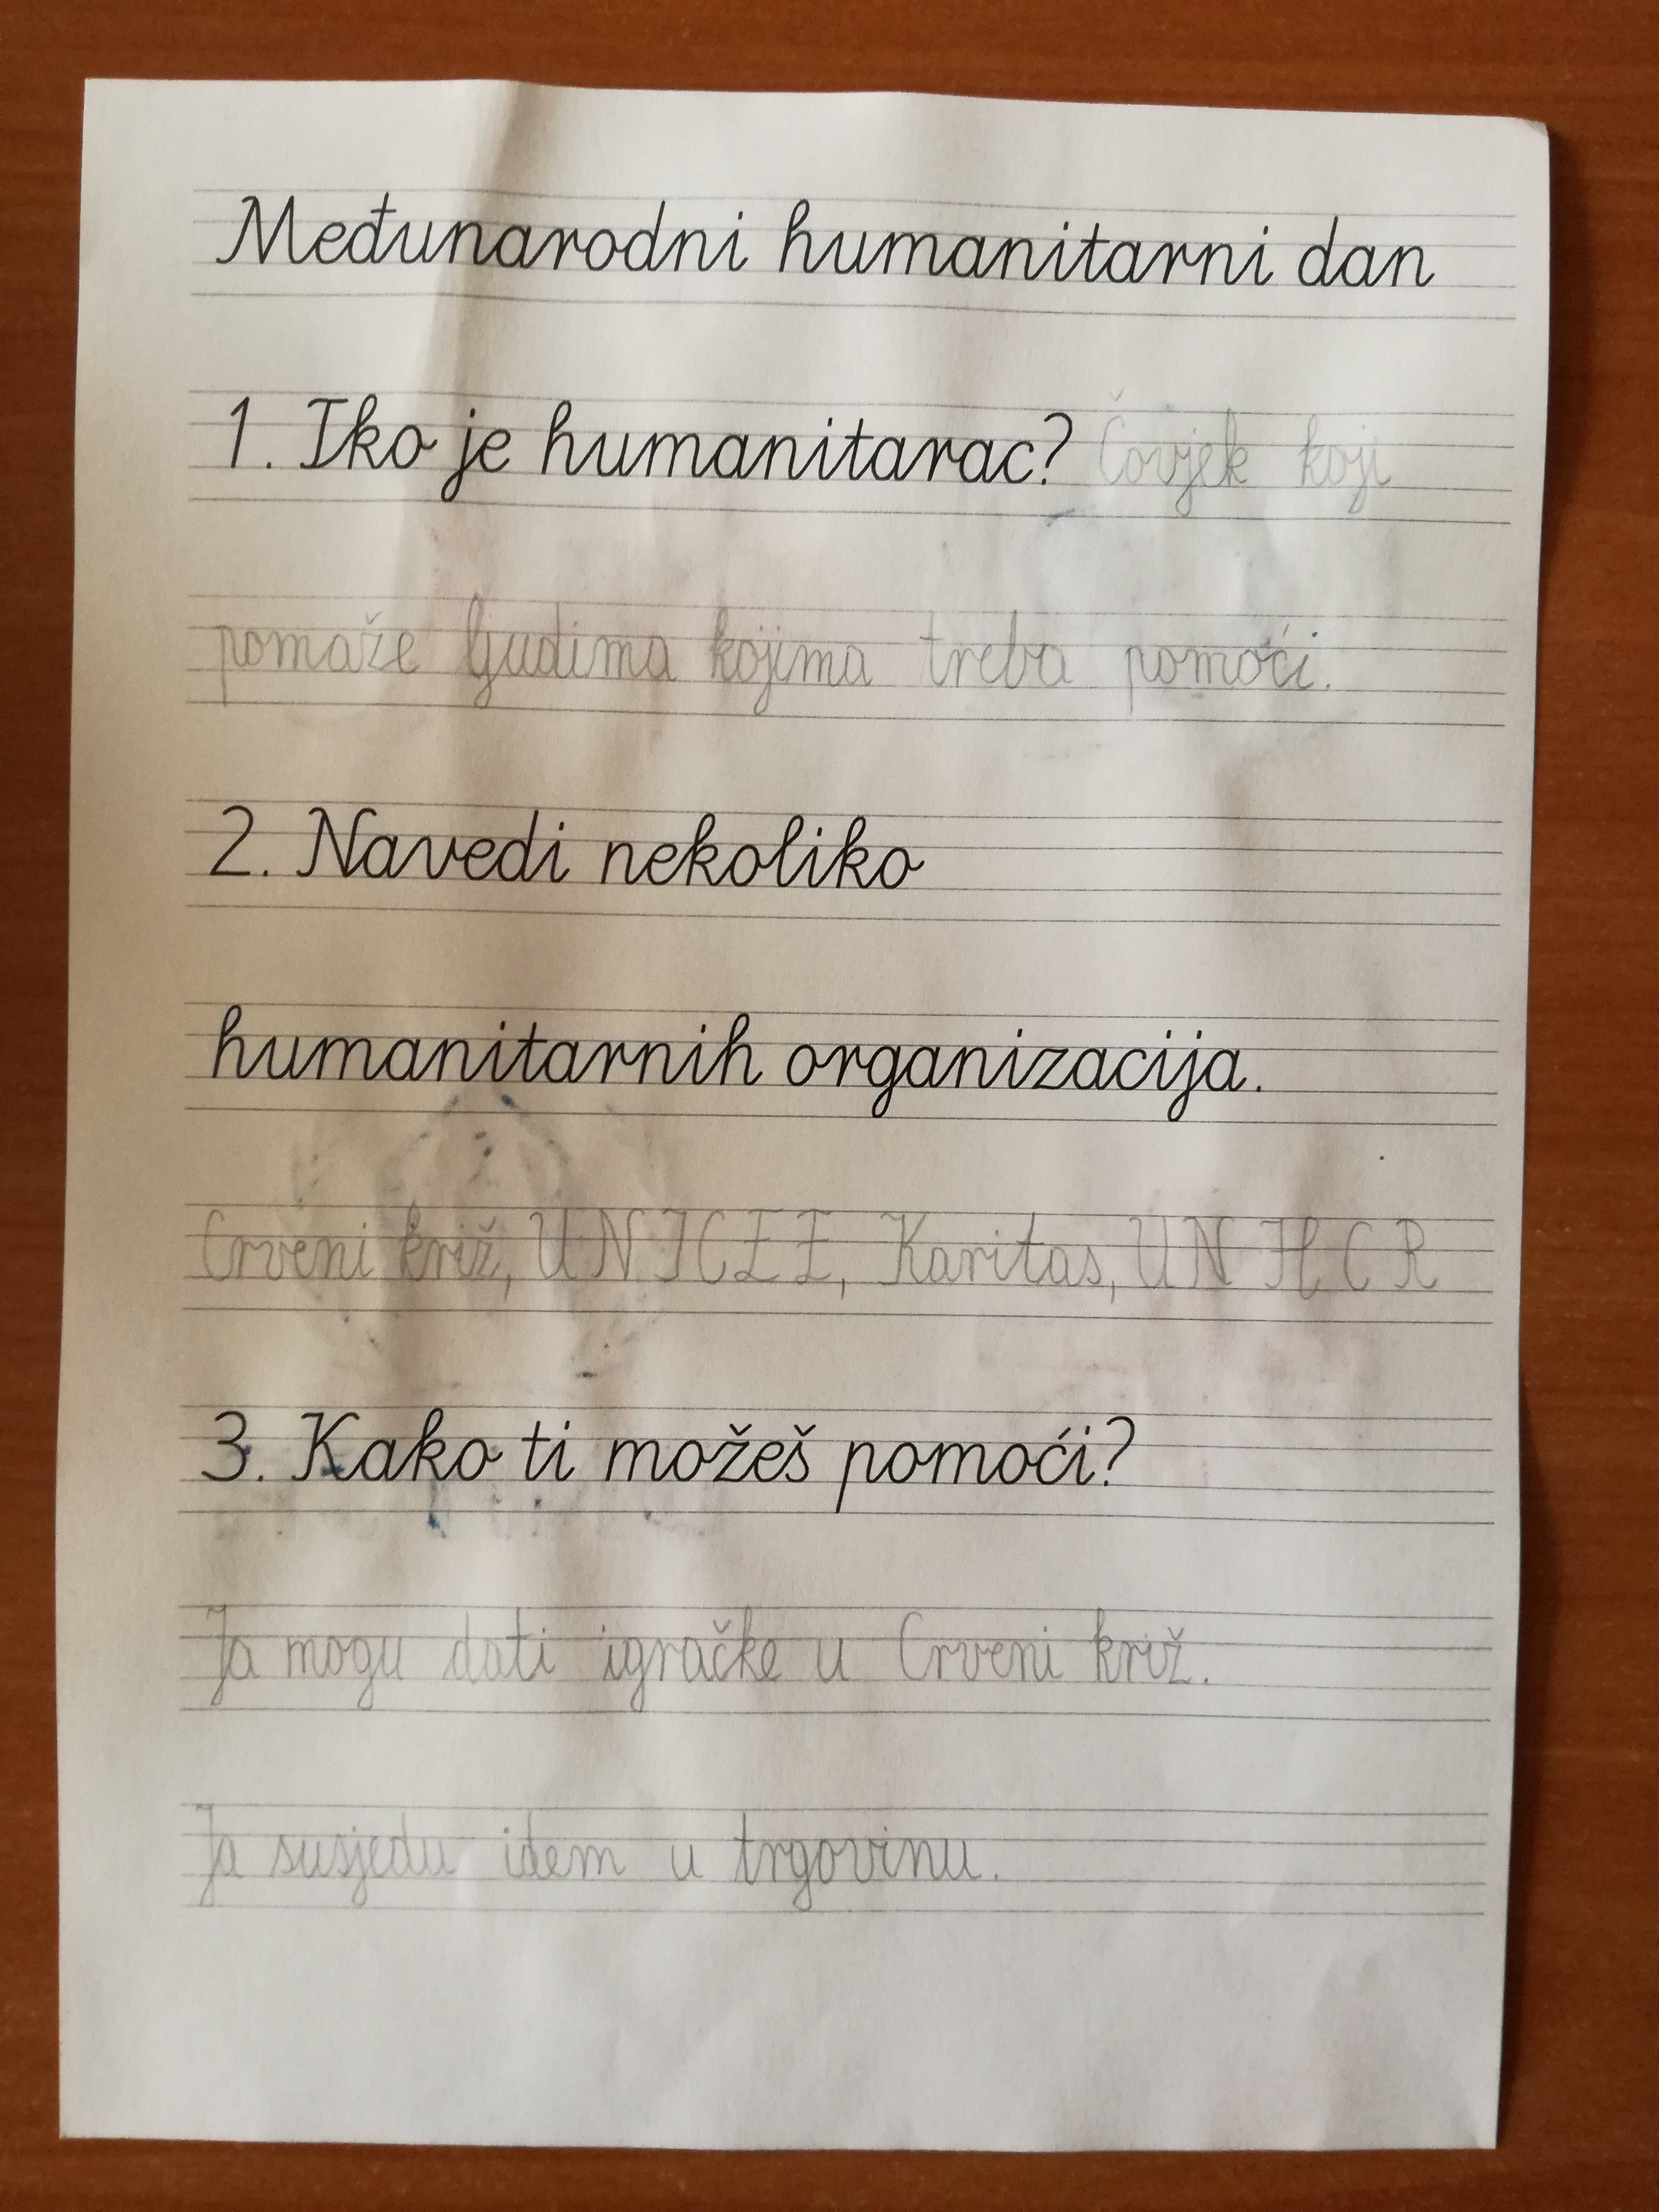 Međunarodni humanitarni dan
1. Tko je humanitarac? Čovjek koji
pomaže ljudima kojima treba pomoći.
2. Navedi nekoliko
humanitarnih organizacija.
Crveni križ, UNICEF, Karitas, UNHCR
3. Kako ti možeš pomoći?
Ja mogu dati igračke u Crveni križ.
Ja susjedu idem u trgovinu.